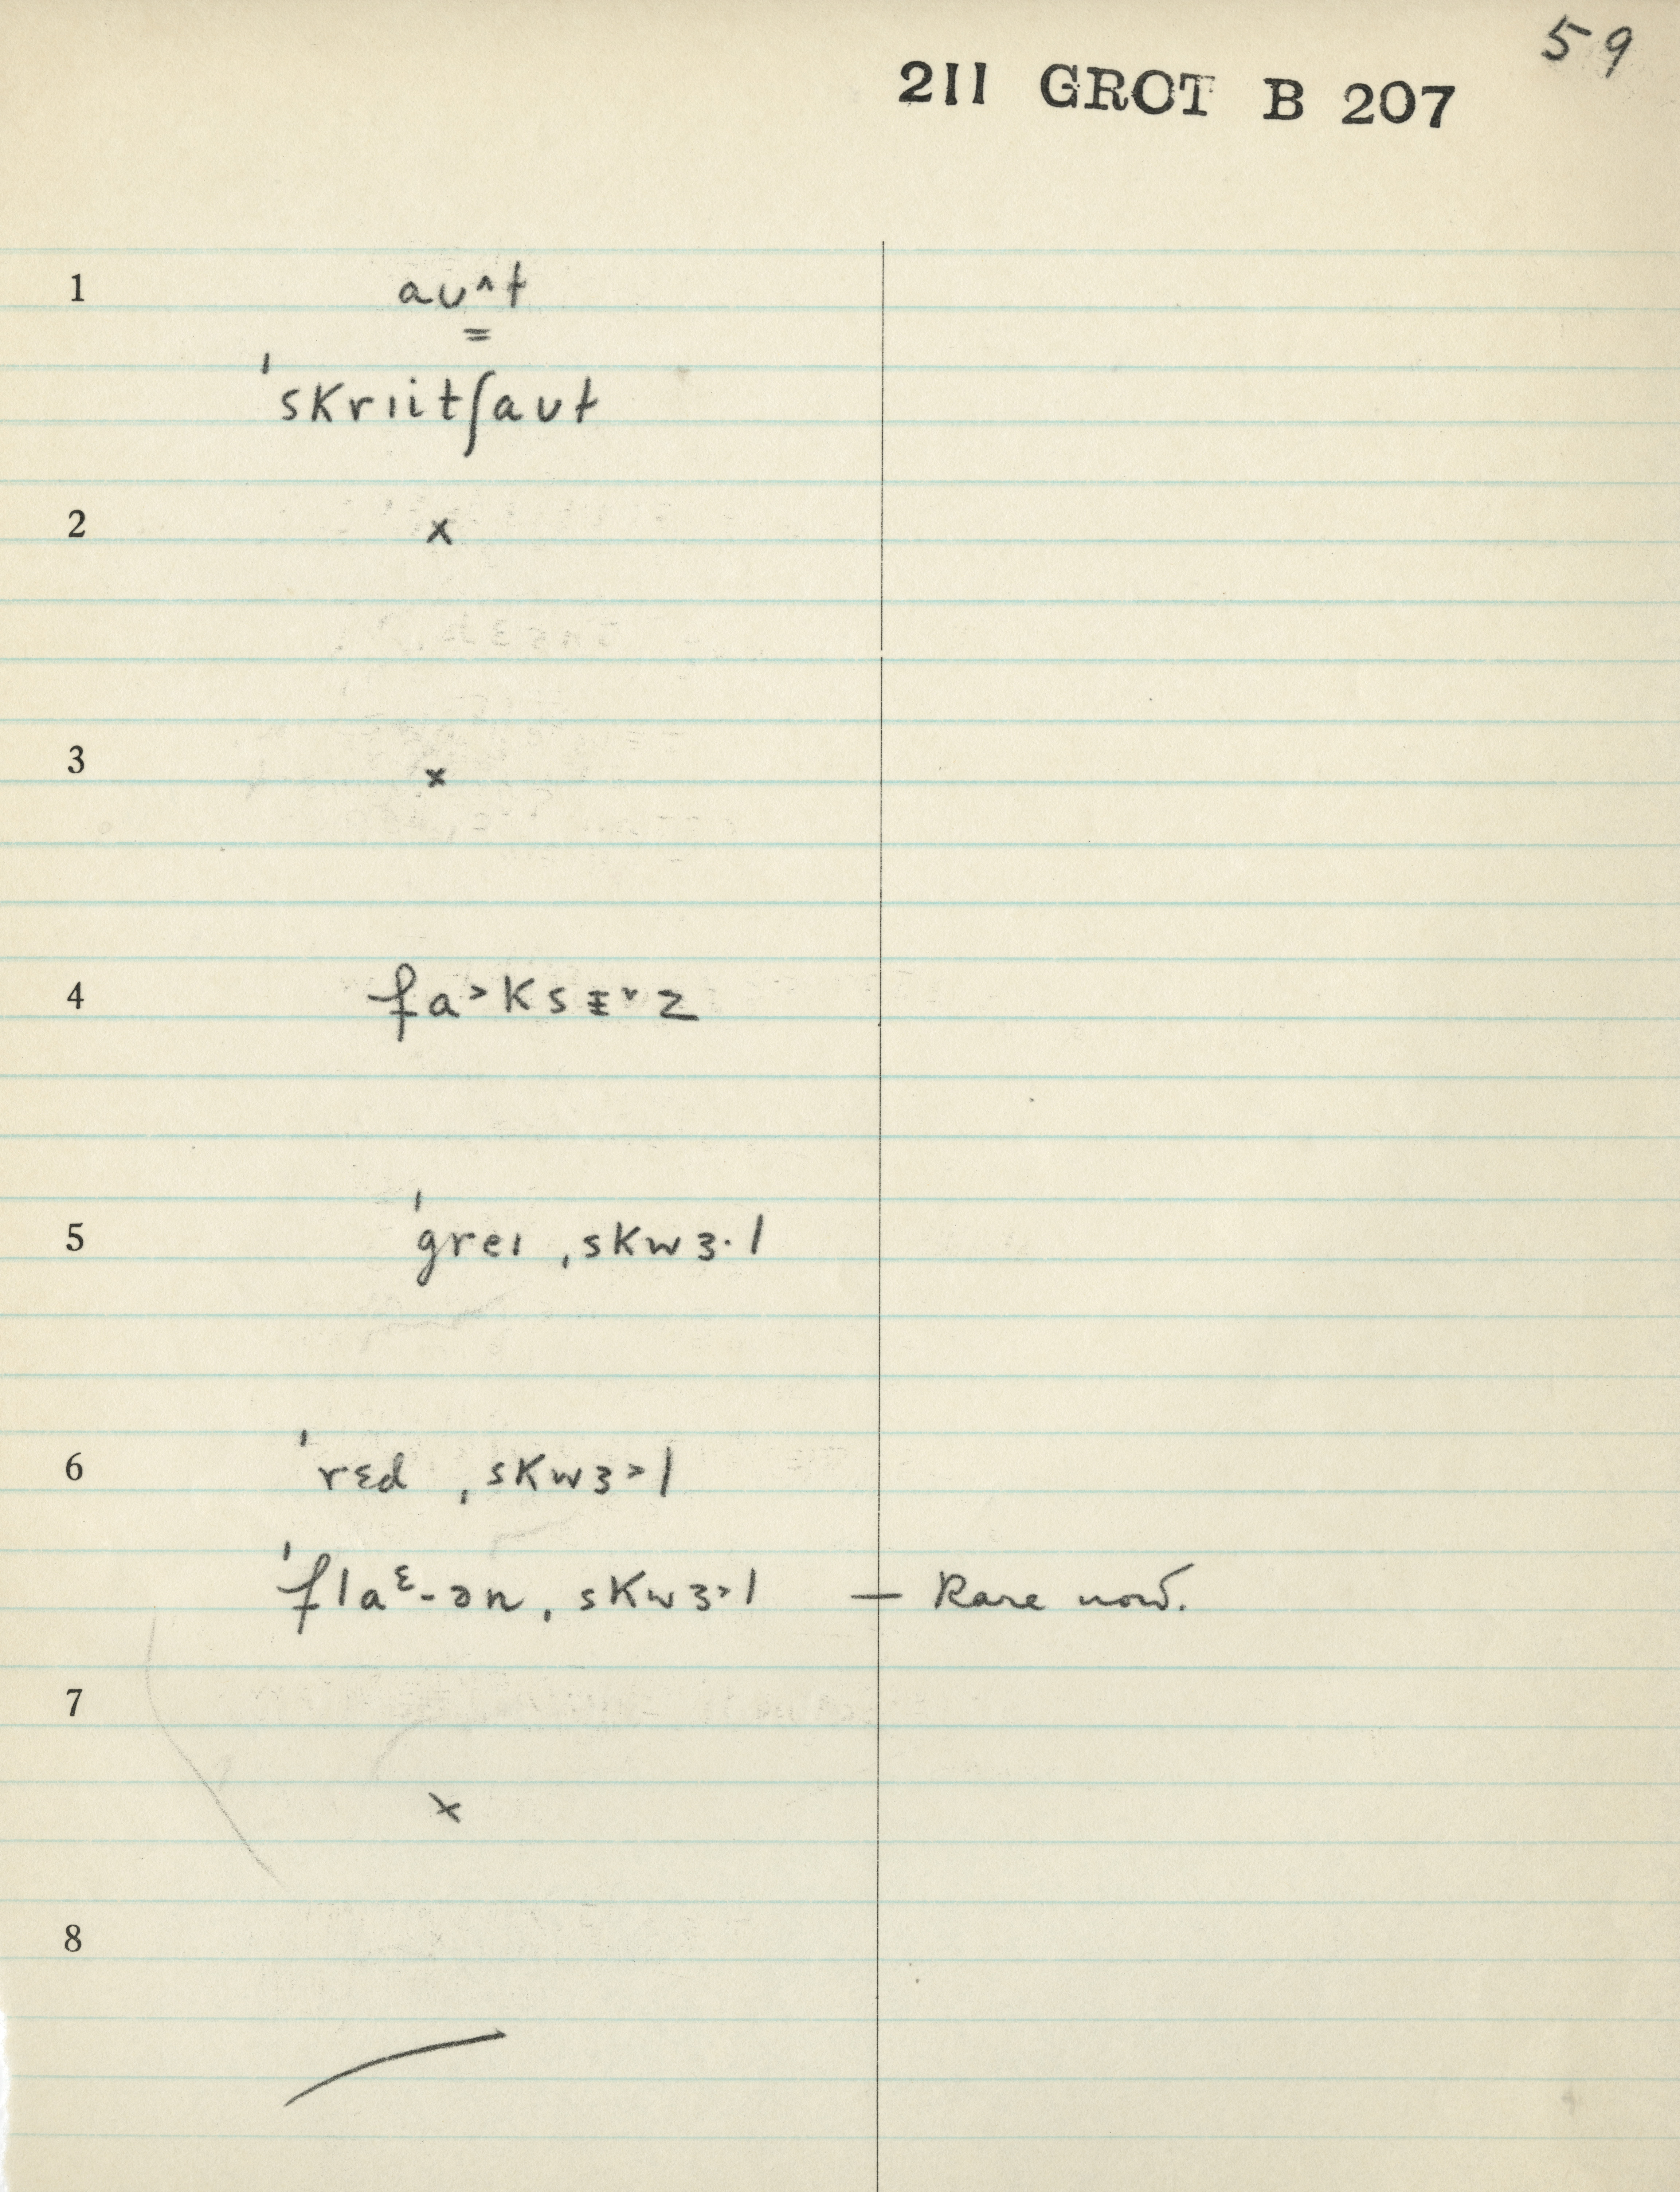 59
211 GROT B 207
1 aʊ^t
=
ˈskriitʃaʊt
2 x
3 x
4 fa>ksᵻ˅z
5 ˈgreɪ ˌskwɜ·l
6 ˈrɛd ˌskwɜ>l
ˈflaᵋ-ən ˌskwɜ>l — Rare now.
7
x
8